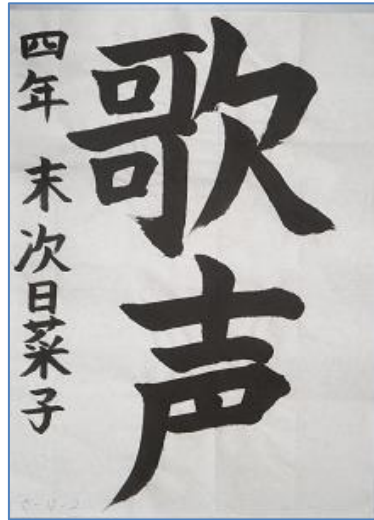 歌声
四年 末次日菜子